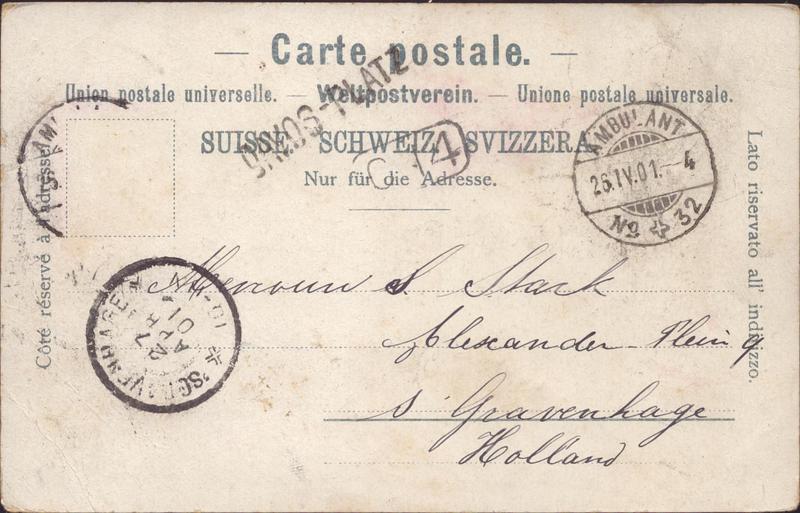 — Carte postale. —
Union postale universelle. — Weltpostverein. — Unione postale universale.
SUISSE SCHWEIZ SVIZZERA
Nur für die Adresse.
Côté réservé à l'adresse.
Lato riservato all' indirizzo.
DAVOS-PLATZ
4
AMBULANT
26.IV.01.-4
No 32
AM
'SGRAVENHAGE
27
APR
01
S Stark
Alexander Plein 9
s' Gravenhage
Holland